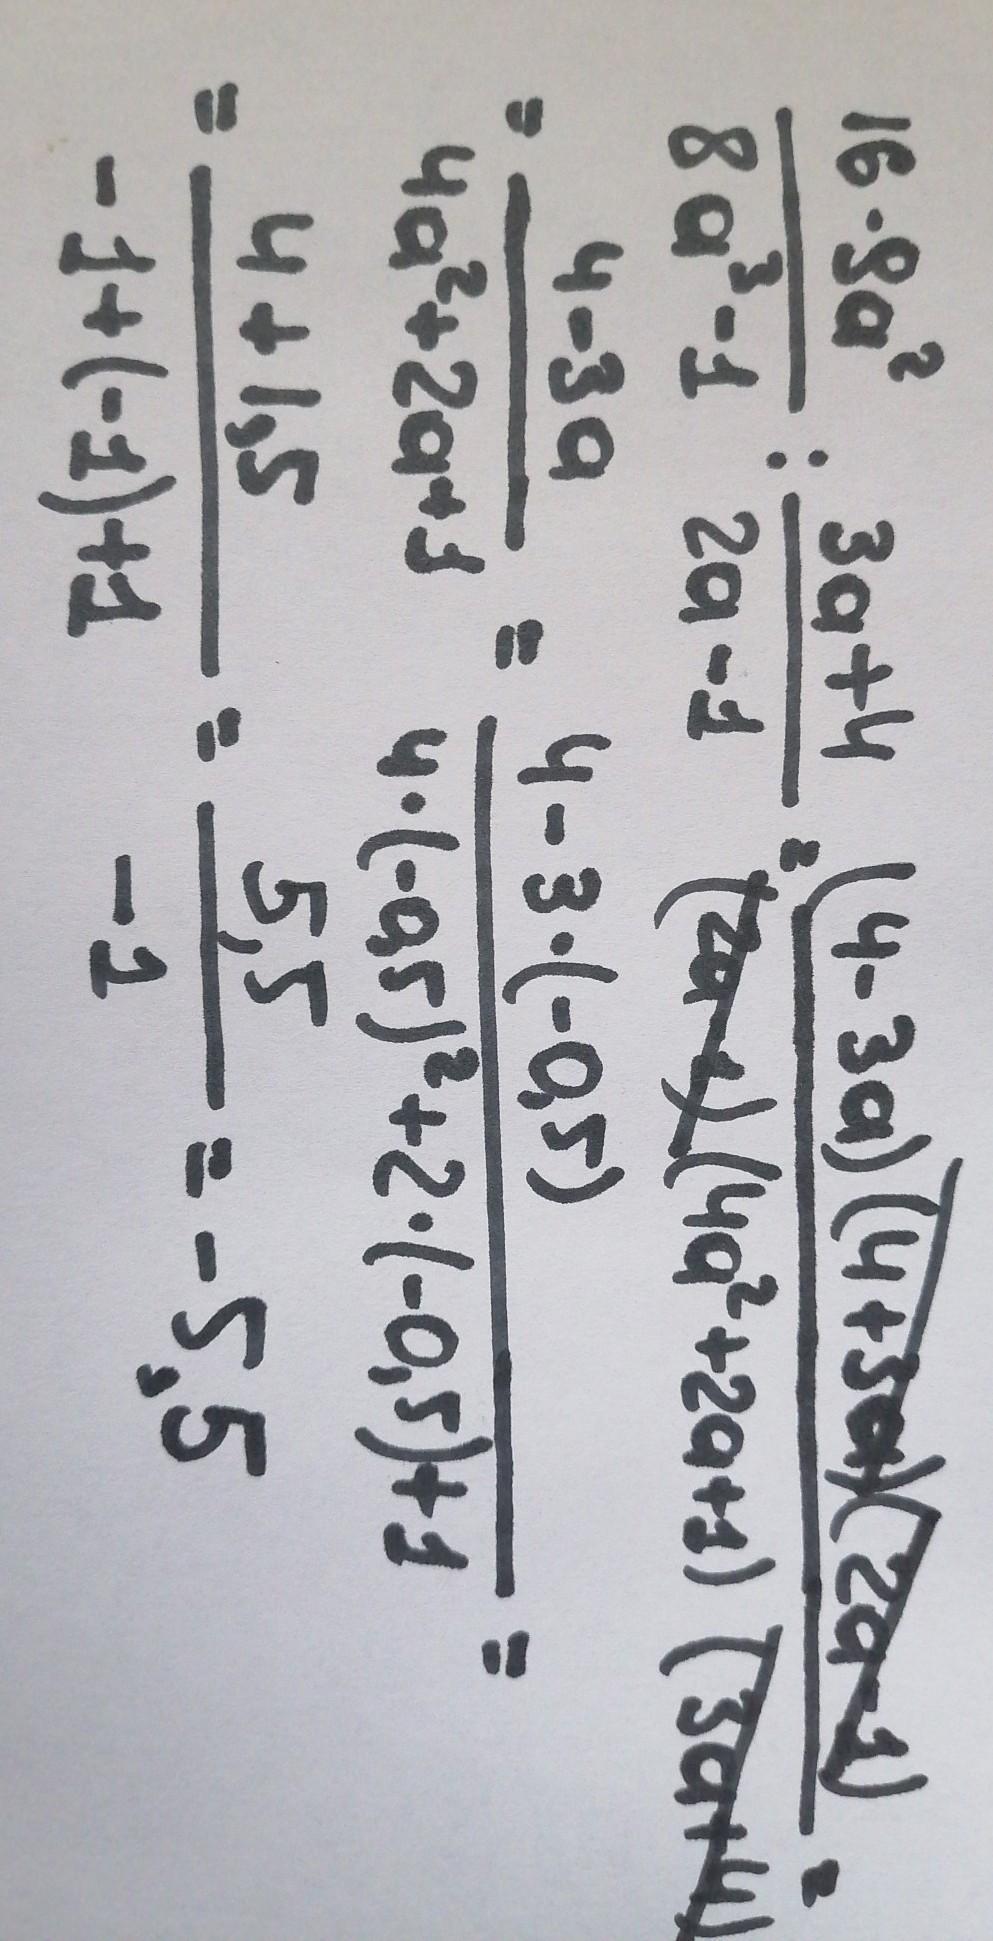 16-9a² / 8a³-1 : 3a+4 / 2a-1 = (4-3a)(4+3a)(2a-1) / (2a-1)(4a²+2a+1)(3a+4) =
= 4-3a / 4a²+2a+1 = 4-3·(-0,5) / 4·(-0,5)²+2·(-0,5)+1 =
= 4+1,5 / -1+(-1)+1 = 5,5 / -1 = -5,5